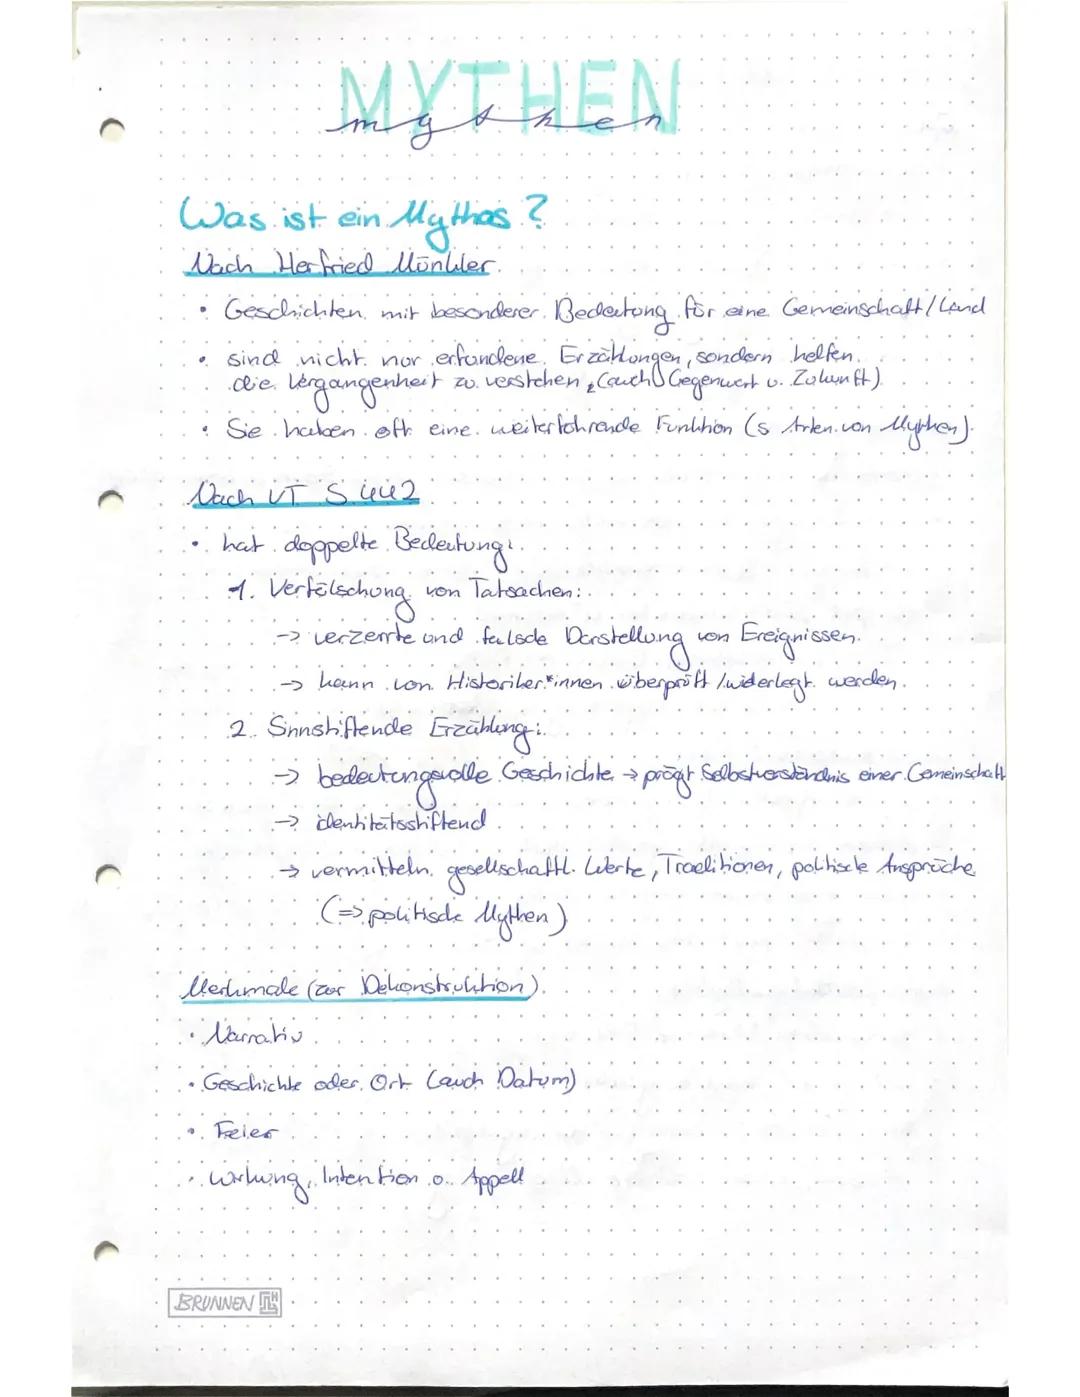 MYTHEN
mythen
Was ist ein Mythos?
Nach Herfried Münkler
• Geschichten mit besonderer Bedeutung für eine Gemeinschaft/Land
• sind nicht nur erfundene Erzählungen, sondern helfen
die Vergangenheit zu verstehen, (auch Gegenwart u. Zukunft)
• Sie haben oft eine weiterführende Funktion (s Arten von Mythen).
Nach VT S.442
• hat doppelte Bedeutung:
1. Verfälschung von Tatsachen:
-> verzerrte und falsche Darstellung von Ereignissen
-> kann von Historiker*innen überprüft/widerlegt werden
2. Sinnstiftende Erzählung:
-> bedeutungsvolle Geschichte -> prägt Selbstverständnis einer Gemeinschaft
-> identitätsstiftend
-> vermitteln gesellschaftl. Werte, Traditionen, politische Ansprüche
(=> politische Mythen)
Merkmale (zur Dekonstruktion)
• Narrativ
• Geschichte oder Ort (auch Datum)
• Feier
• Wirkung, Intention o. Appell
BRUNNEN